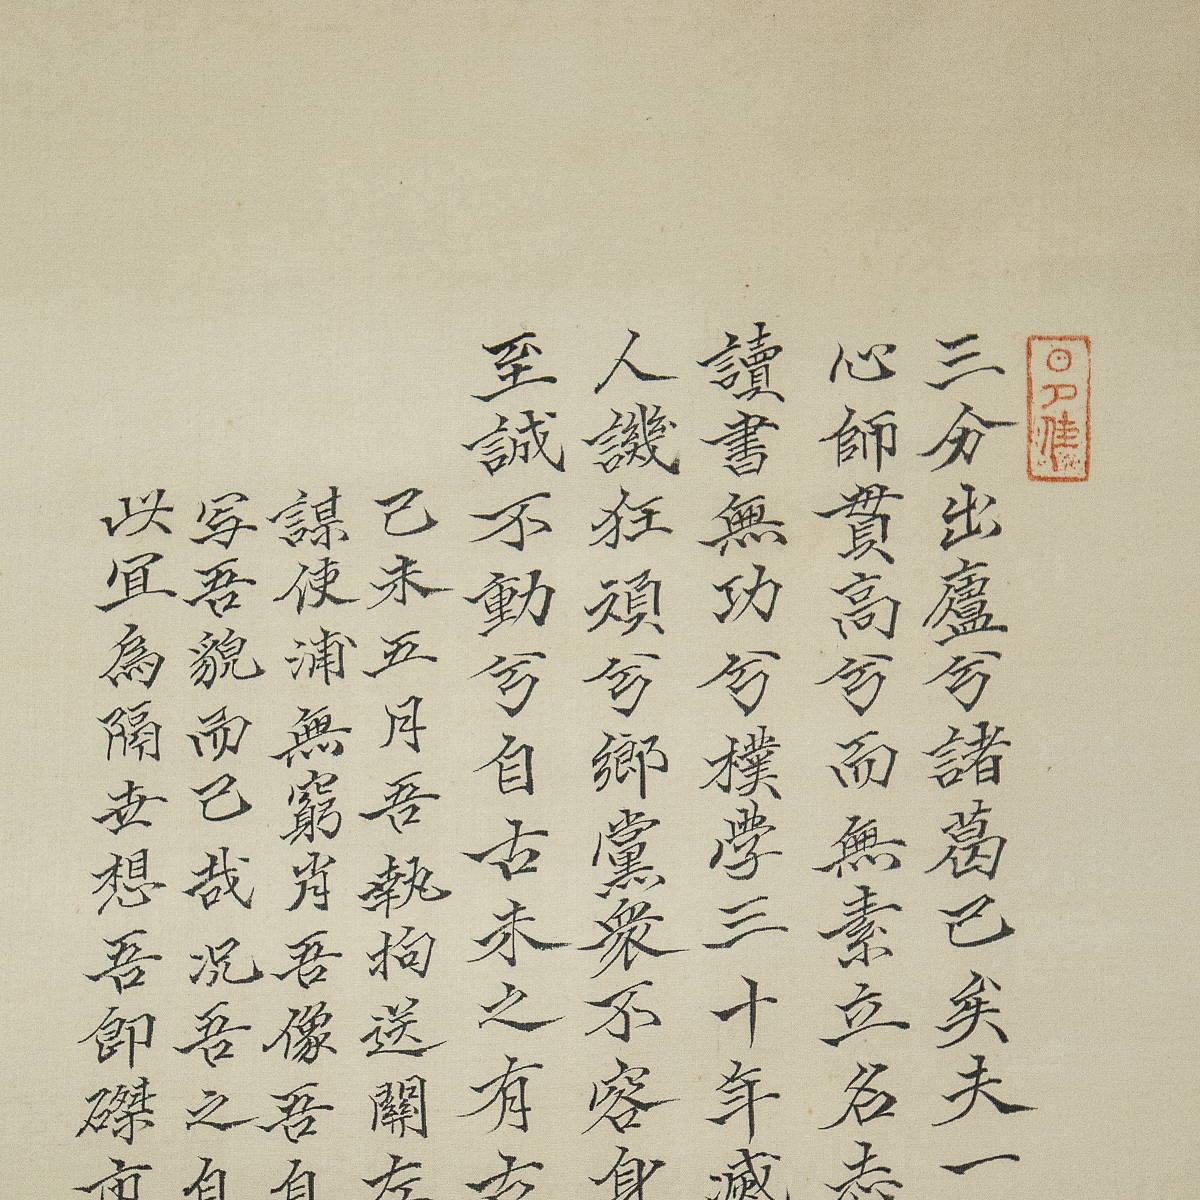 三分出廬兮諸葛已矣夫一
心師貫高兮而無素立名志
讀書無功兮樸學三十年滅
人譏狂頑兮鄉黨衆不容身
至誠不動兮自古未之有古
己未五月吾執拘送關左
謀使浦無窮肖吾像吾自
写吾貌而已哉况吾之自
以宜為隔世想吾即磔市